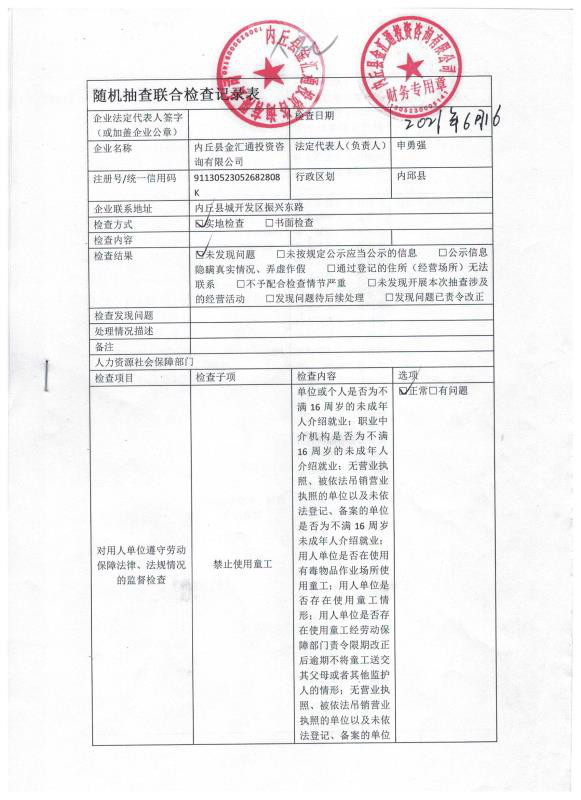 内丘县金汇通投资咨询有限公司
内丘县金汇通投资咨询有限公司
财务专用章
随机抽查联合检查记录表
企业法定代表人签字
（或加盖企业公章）
检查日期
2021年6月16
企业名称
内丘县金汇通投资咨
询有限公司
法定代表人（负责人）
申勇强
注册号/统一信用码
91130523052682808
K
行政区划
内邱县
企业联系地址
内丘县城开发区振兴东路
检查方式
☑实地检查 □书面检查
检查内容
检查结果
☑未发现问题 □未按规定公示应当公示的信息 □公示信息
隐瞒真实情况、弄虚作假 □通过登记的住所（经营场所）无法
联系 □不予配合检查情节严重 □未发现开展本次抽查涉及
的经营活动 □发现问题待后续处理 □发现问题已责令改正
检查发现问题
处理情况描述
备注
人力资源社会保障部门
检查项目
检查子项
检查内容
选项
对用人单位遵守劳动
保障法律、法规情况
的监督检查
禁止使用童工
单位或个人是否为不
满 16 周岁的未成年
人介绍就业；职业中
介机构是否为不满
16 周岁的未成年人
介绍就业；无营业执
照、被依法吊销营业
执照的单位以及未依
法登记、备案的单位
是否为不满 16 周岁
未成年人介绍就业；
用人单位是否在使用
有毒物品作业场所使
用童工；用人单位是
否存在使用童工情
形；用人单位是否存
在使用童工经劳动保
障部门责令限期改正
后逾期不将童工送交
其父母或者其他监护
人的情形；无营业执
照、被依法吊销营业
执照的单位以及未依
法登记、备案的单位
☑正常□有问题